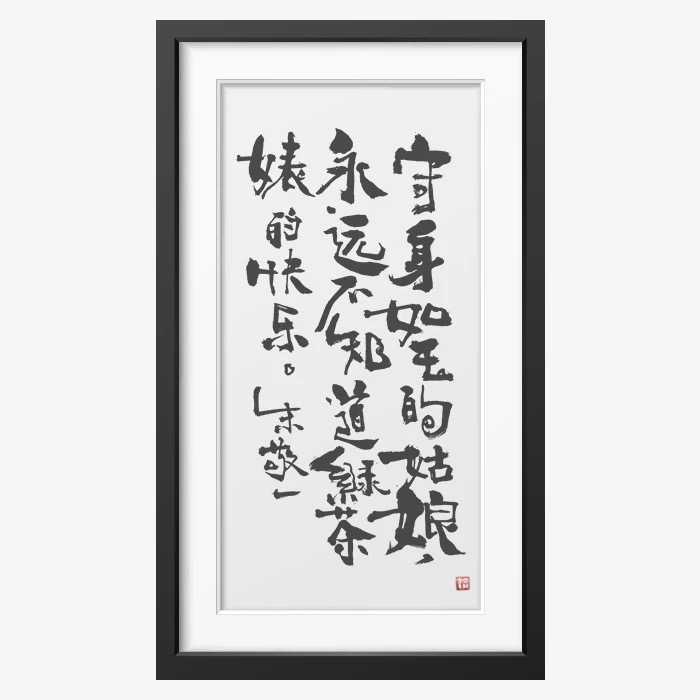 守身如玉的姑娘，
永远不知道綠茶
婊的快乐。「末敬」